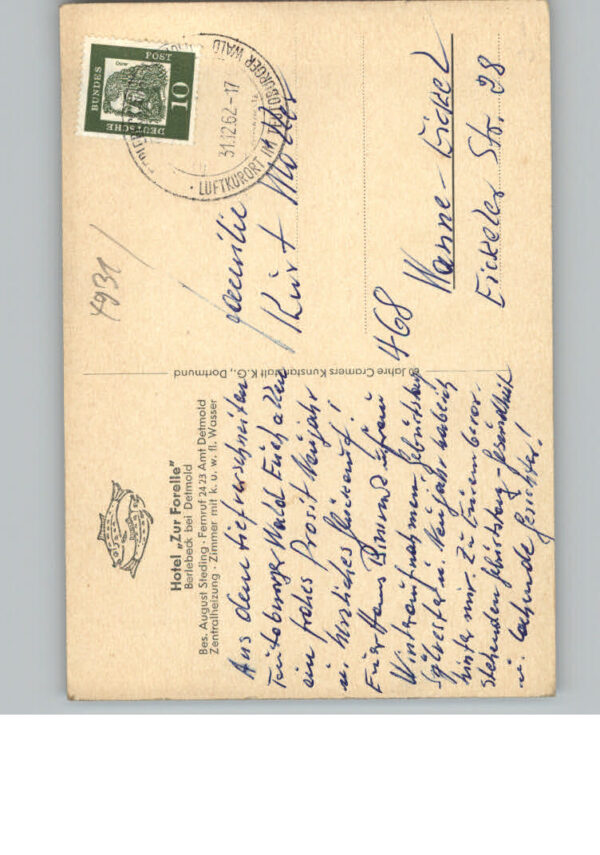 Hotel „Zur Forelle"
Berlebeck bei Detmold
Bes. August Steding · Fernruf 24 23 Amt Detmold
Zentralheizung · Zimmer mit k. u. w. fl. Wasser
Aus dem tiefverschneiten
Teutoburger Wald Euch allen
ein frohes Prosit Neujahr
u. herzliches Glückauf!
Euer Hans
Winteraufnahmen, Geburtstag
Sylvester u. Neujahr habe ich
hinter mir. Zu Eurem bevor-
stehenden Geburtstag Gesundheit
u. lachende Gesichter!
60 Jahre Cramers Kunstanstalt K.G., Dortmund
4931
DEUTSCHE
BUNDES
POST
10
LUFTKURORT IM TEUTOBURGER WALD
31.12.62-17
Familie
Kurt Möller
468 Wanne-Eickel
Eickeler Str. 28